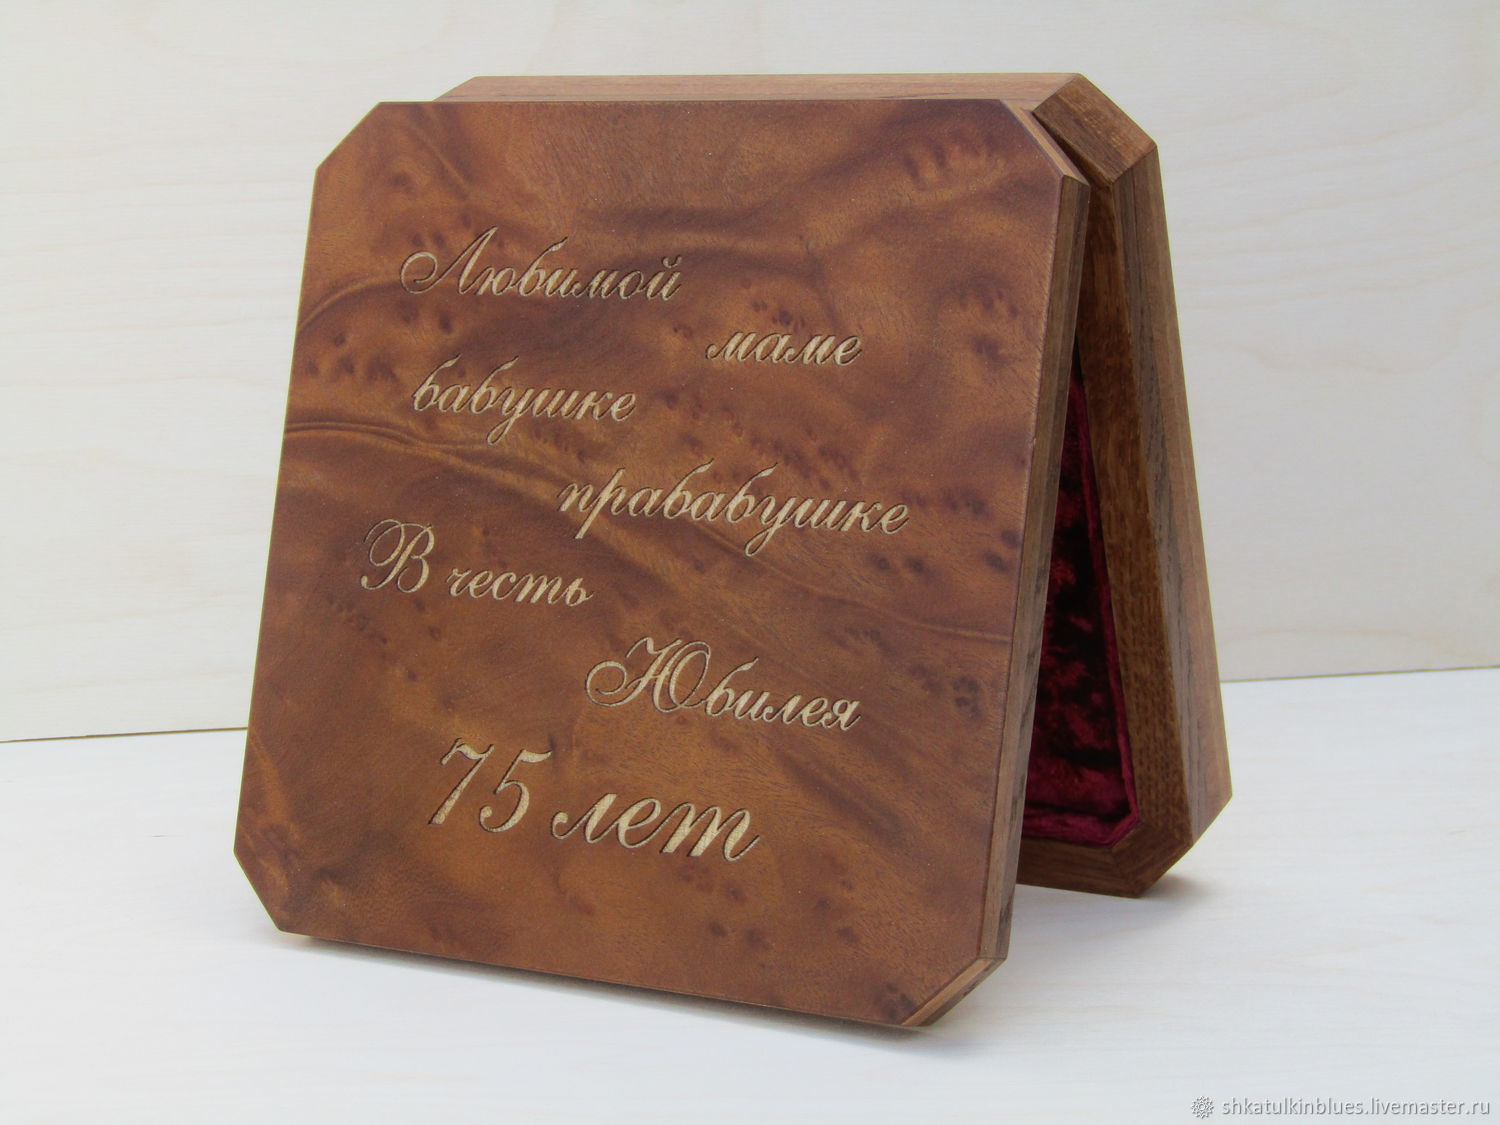 Любимой
маме
бабушке
прабабушке
В честь
Юбилея
75 лет
shkatulkinblues.livemaster.ru